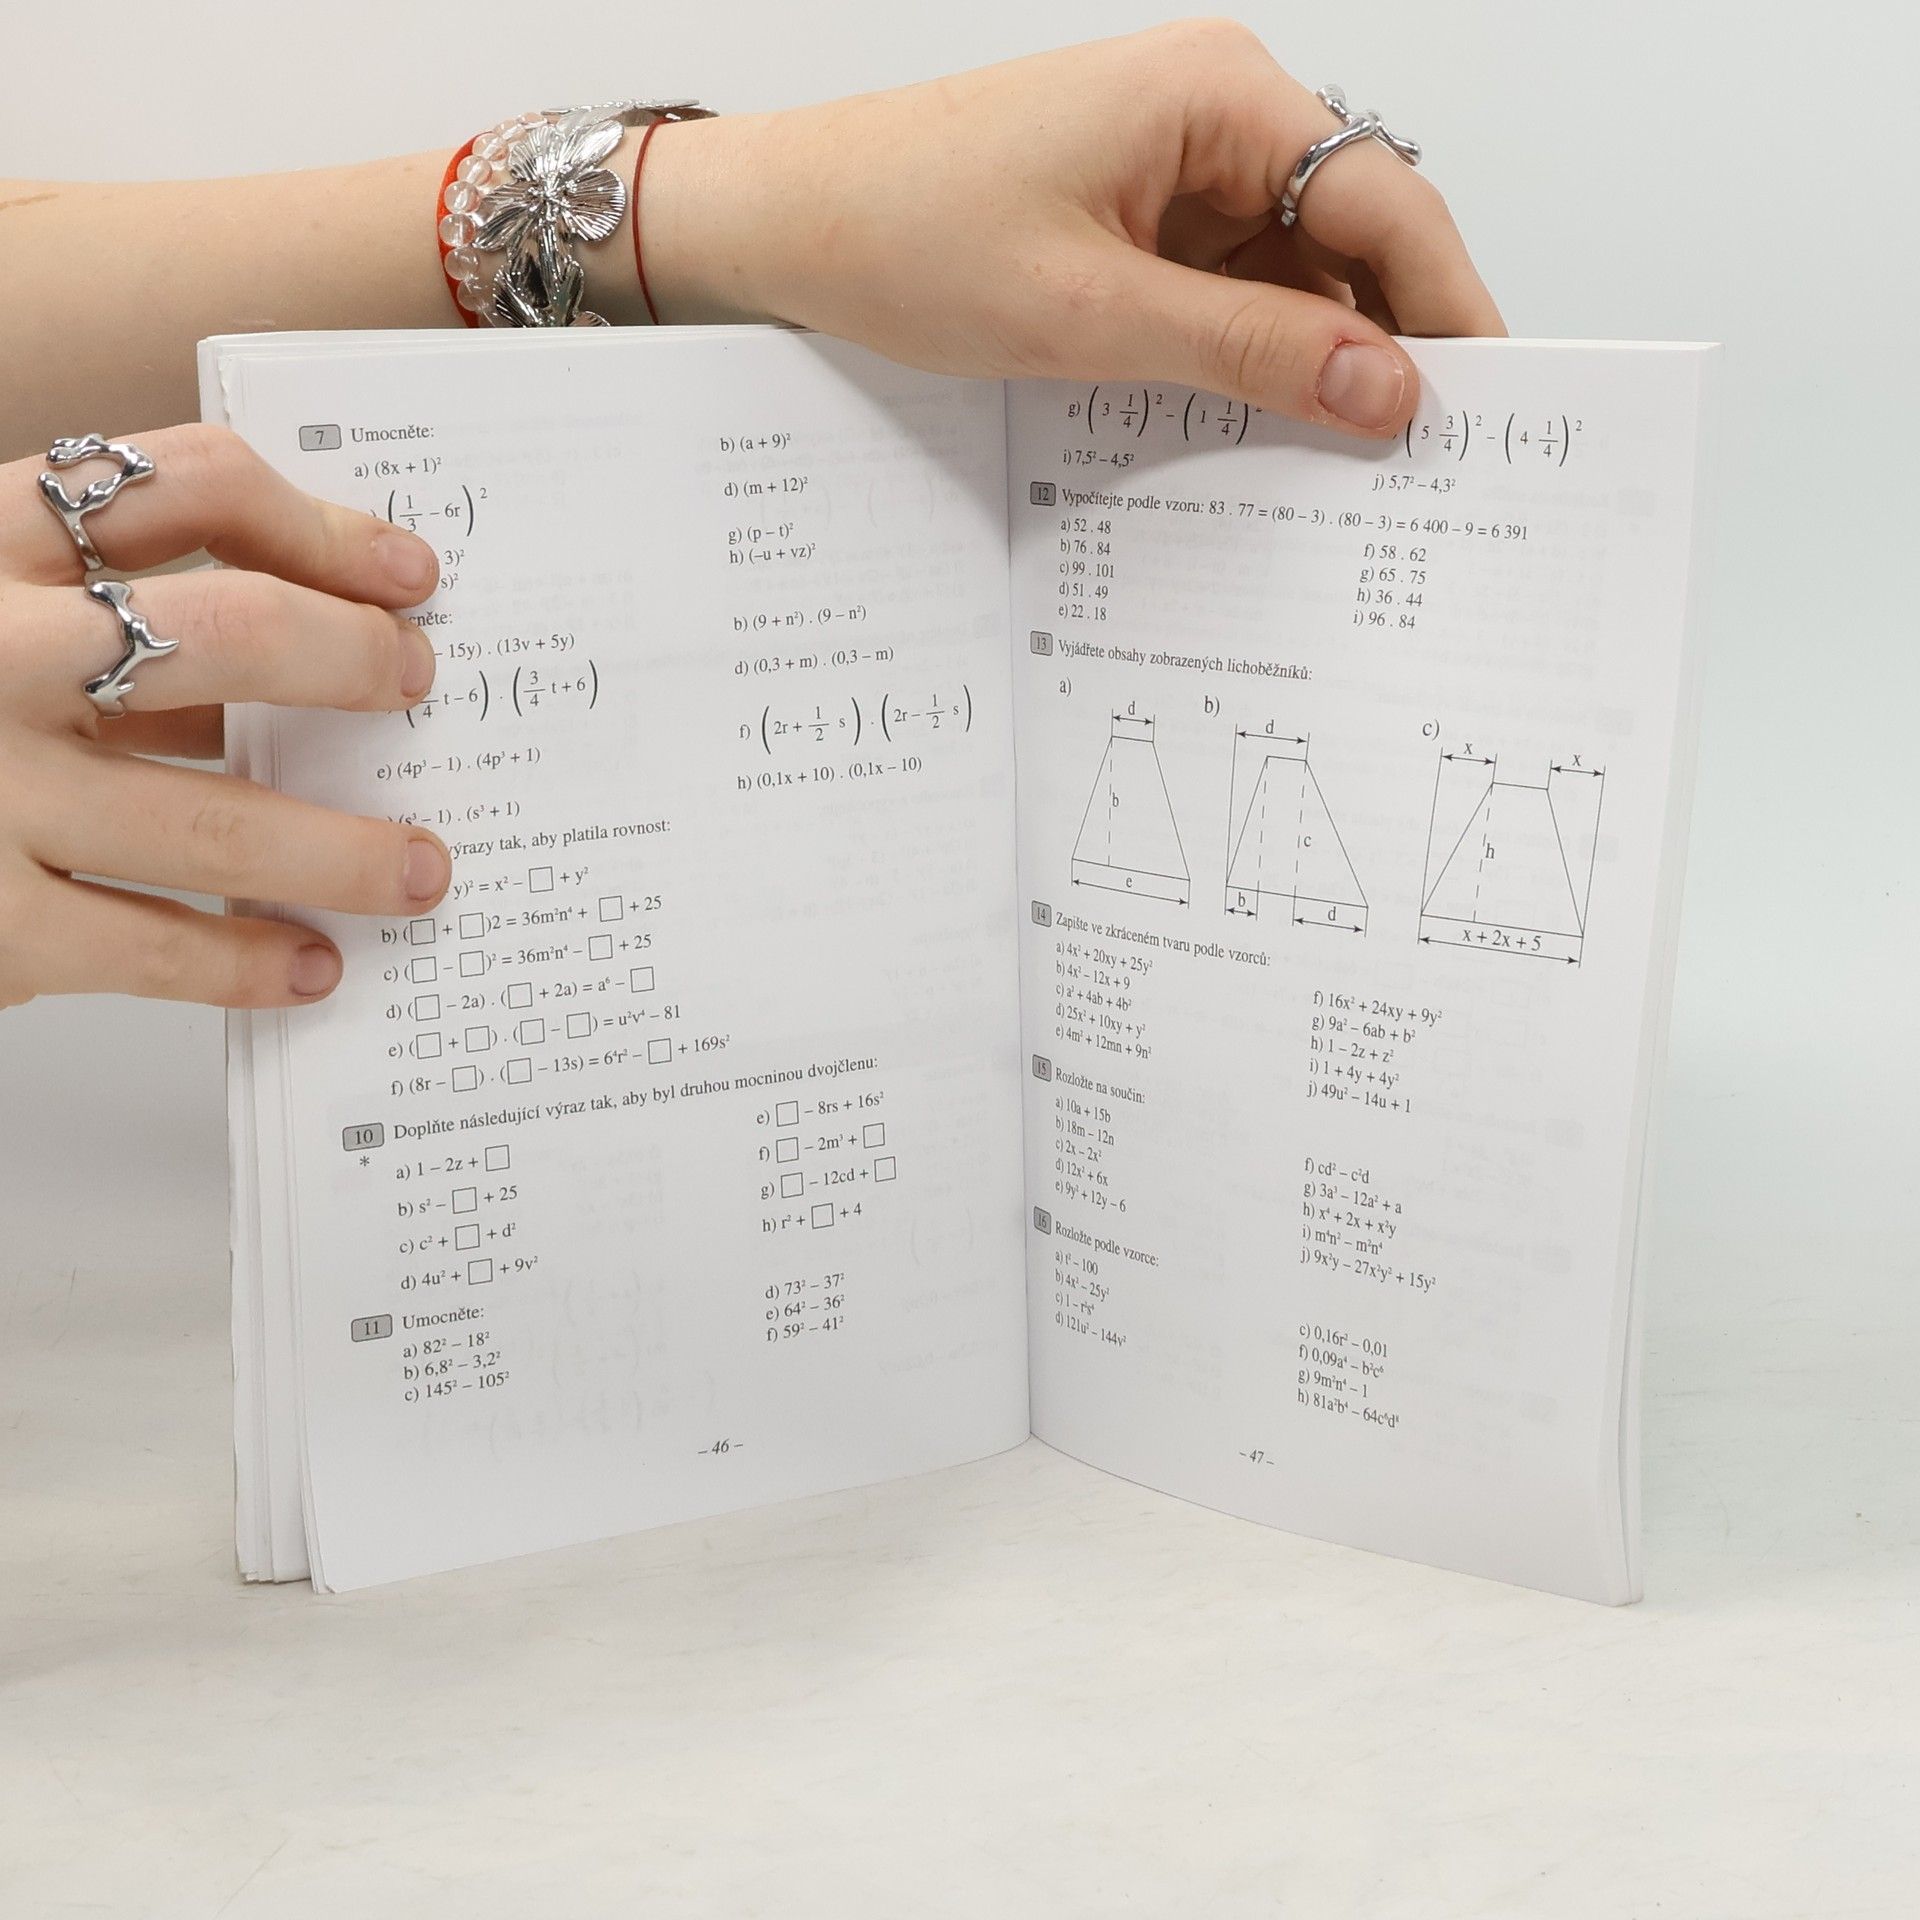 7 Umocněte:
a) (8x + 1)²
b) (a + 9)²
(1/3 – 6r)²
d) (m + 12)²
3)²
g) (p – t)²
s)²
h) (–u + vz)²
– 15y) . (13v + 5y)
b) (9 + n²) . (9 – n²)
/4 t – 6) . (3/4 t + 6)
d) (0,3 + m) . (0,3 – m)
e) (4p³ – 1) . (4p³ + 1)
f) (2r + 1/2 s) . (2r – 1/2 s)
(s³ – 1) . (s³ + 1)
h) (0,1x + 10) . (0,1x – 10)
tak, aby platila rovnost:
y)² = x² – □ + y²
b) (□ + □)2 = 36m²n⁴ + □ + 25
c) (□ – □)² = 36m²n⁴ – □ + 25
d) (□ – 2a) . (□ + 2a) = a⁶ – □
e) (□ + □) . (□ – □) = u²v⁴ – 81
f) (8r – □) . (□ – 13s) = 6⁴r² – □ + 169s²
10 Doplňte následující výraz tak, aby byl druhou mocninou dvojčlenu:
*
a) 1 – 2z + □
b) s² – □ + 25
c) c² + □ + d²
d) 4u² + □ + 9v²
e) □ – 8rs + 16s²
f) □ – 2m³ + □
g) □ – 12cd + □
h) r² + □ + 4
11 Umocněte:
a) 82² – 18²
b) 6,8² – 3,2²
c) 145² – 105²
d) 73² – 37²
e) 64² – 36²
f) 59² – 41²
– 46 –
g) (3 1/4)² – (1 1/4)²
(5 3/4)² – (4 1/4)²
i) 7,5² – 4,5²
j) 5,7² – 4,3²
12 Vypočítejte podle vzoru: 83 . 77 = (80 – 3) . (80 – 3) = 6 400 – 9 = 6 391
a) 52 . 48
b) 76 . 84
c) 99 . 101
d) 51 . 49
e) 22 . 18
f) 58 . 62
g) 65 . 75
h) 36 . 44
i) 96 . 84
13 Vyjádřete obsahy zobrazených lichoběžníků:
a)
d
b
e
b)
d
c
b
d
c)
x
x
h
x + 2x + 5
14 Zapište ve zkráceném tvaru podle vzorců:
a) 4x² + 20xy + 25y²
b) 4x² – 12x + 9
c) a² + 4ab + 4b²
d) 25x² + 10xy + y²
e) 4m² + 12mn + 9n²
f) 16x² + 24xy + 9y²
g) 9a² – 6ab + b²
h) 1 – 2z + z²
i) 1 + 4y + 4y²
j) 49u² – 14u + 1
15 Rozložte na součin:
a) 10a + 15b
b) 18m – 12n
c) 2x – 2x²
d) 12x² + 6x
e) 9y² + 12y – 6
f) cd² – c²d
g) 3a³ – 12a² + a
h) x⁴ + 2x + x²y
i) m⁴n² – m²n⁴
j) 9x²y – 27x²y² + 15y²
16 Rozložte podle vzorce:
a) t² – 100
b) 4x² – 25y²
c) 1 – r²s⁴
d) 121u² – 144v²
c) 0,16r² – 0,01
f) 0,09a⁴ – b²c⁶
g) 9m²n⁴ – 1
h) 81a²b⁴ – 64c⁶d⁸
– 47 –